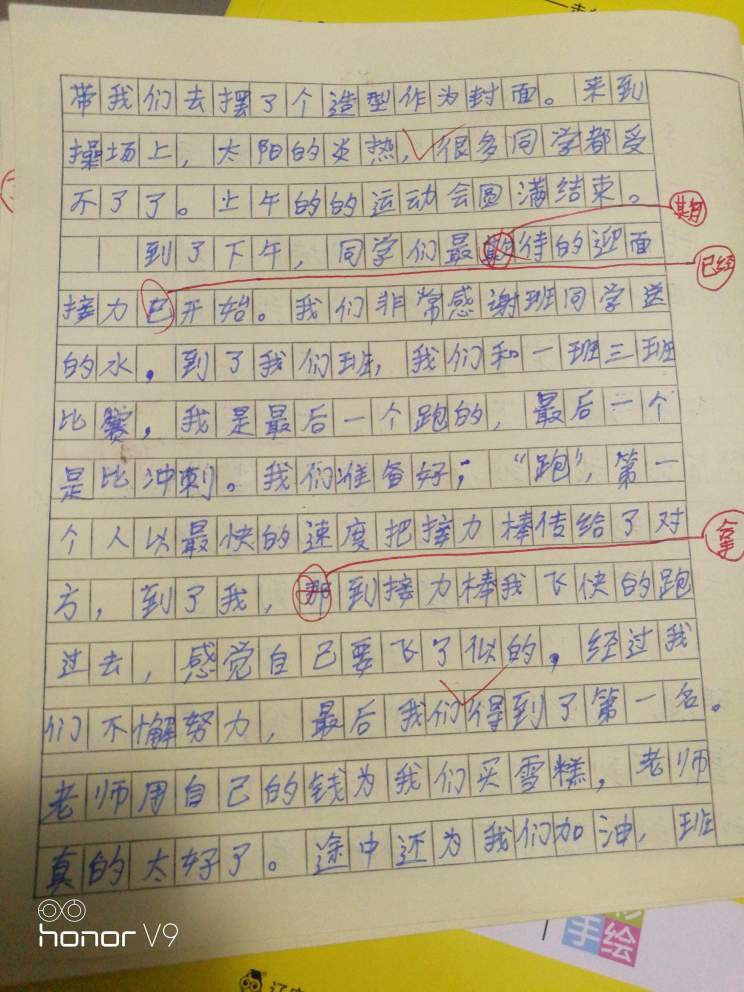 带我们去摆了个造型作为封面。来到
操场上，太阳的炎热，很多同学都受
不了了。上午的的运动会圆满结束。
到了下午，同学们最期待的迎面
期
接力已开始。我们非常感谢班同学送
已经
的水，到了我们班，我们和一班三班
比赛，我是最后一个跑的，最后一个
是比冲刺。我们准备好；“跑”，第一
个人以最快的速度把接力棒传给了对
方，到了我，那到接力棒我飞快的跑
拿
过去，感觉自己要飞了似的，经过我
们不懈努力，最后我们得到了第一名。
老师用自己的钱为我们买雪糕，老师
真的太好了。途中还为我们加油，班
honor V9
手绘